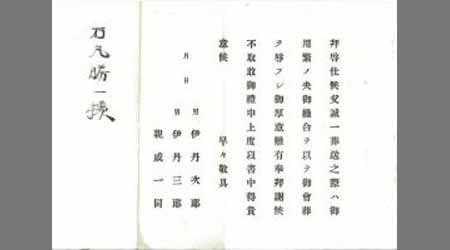 拜啓仕候父誠一葬送之際ハ御
用繁ノ央御繰合ヲ以テ御會葬
ヲ辱フシ御厚意難有奉拜謝候
不取敢御禮申上度以書中得貴
意候 早々敬具
月 日
男 伊丹次郎
男 伊丹三郎
親戚一同
石丸勝一様